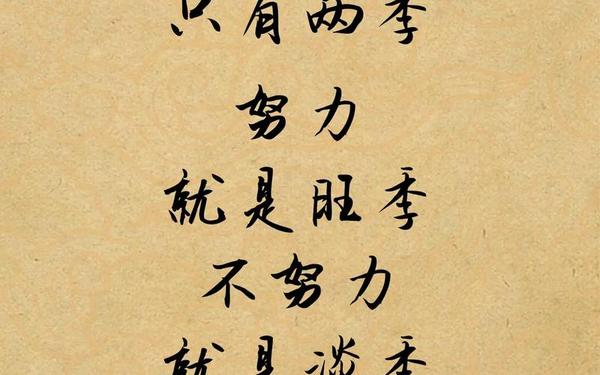 只有两季
努力
就是旺季
不努力
就是淡季